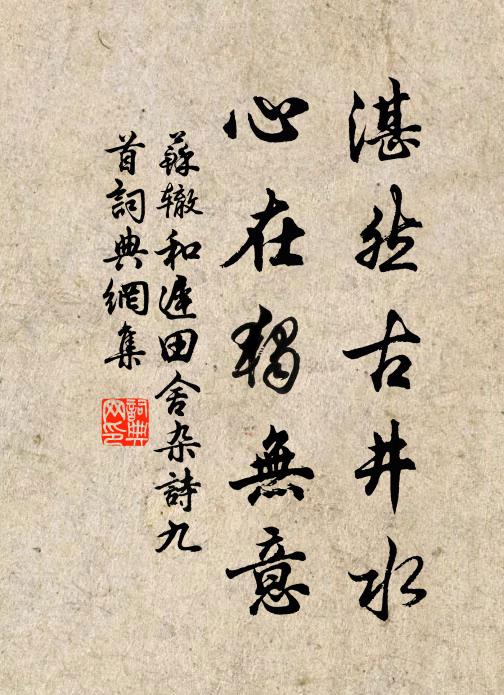 湛然古井水
心在独無意
蘇辙和遲田舍杂詩九
首詞典網集
詞典
网印